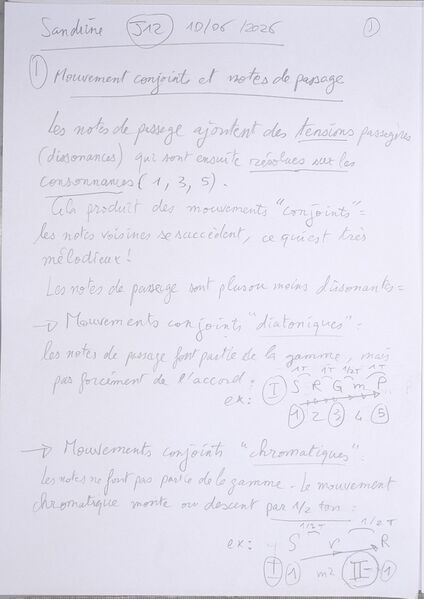 Sandrine J12 10/06/2026 1
I Mouvement conjoint et notes de passage
Les notes de passage ajoutent des tensions passagères
(dissonances) qui sont ensuite résolues sur les
consonnances (1, 3, 5).
Cela produit des mouvements "conjoints" =
les notes voisines se succèdent, ce qui est très
mélodieux !
Les notes de passage sont plus ou moins dissonantes =
→ Mouvements conjoints "diatoniques" =
les notes de passage font partie de la gamme, mais
1T 1T 1/2T 1T
pas forcément de l'accord : I S R G m P
ex : 1 2 3 4 5
→ Mouvements conjoints "chromatiques" =
les notes ne font pas partie de la gamme - Le mouvement
chromatique monte ou descend par 1/2 ton :
1/2T 1/2T
ex : S r R
I 1 m2 II- 1